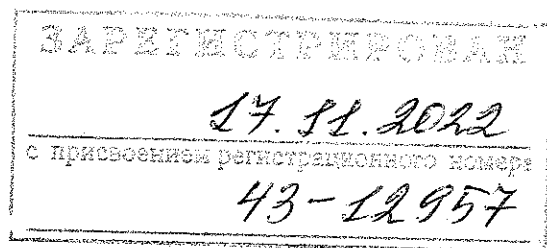 ЗАРЕГИСТРИРОВАН
17.11.2022
с присвоением регистрационного номера
43-12957